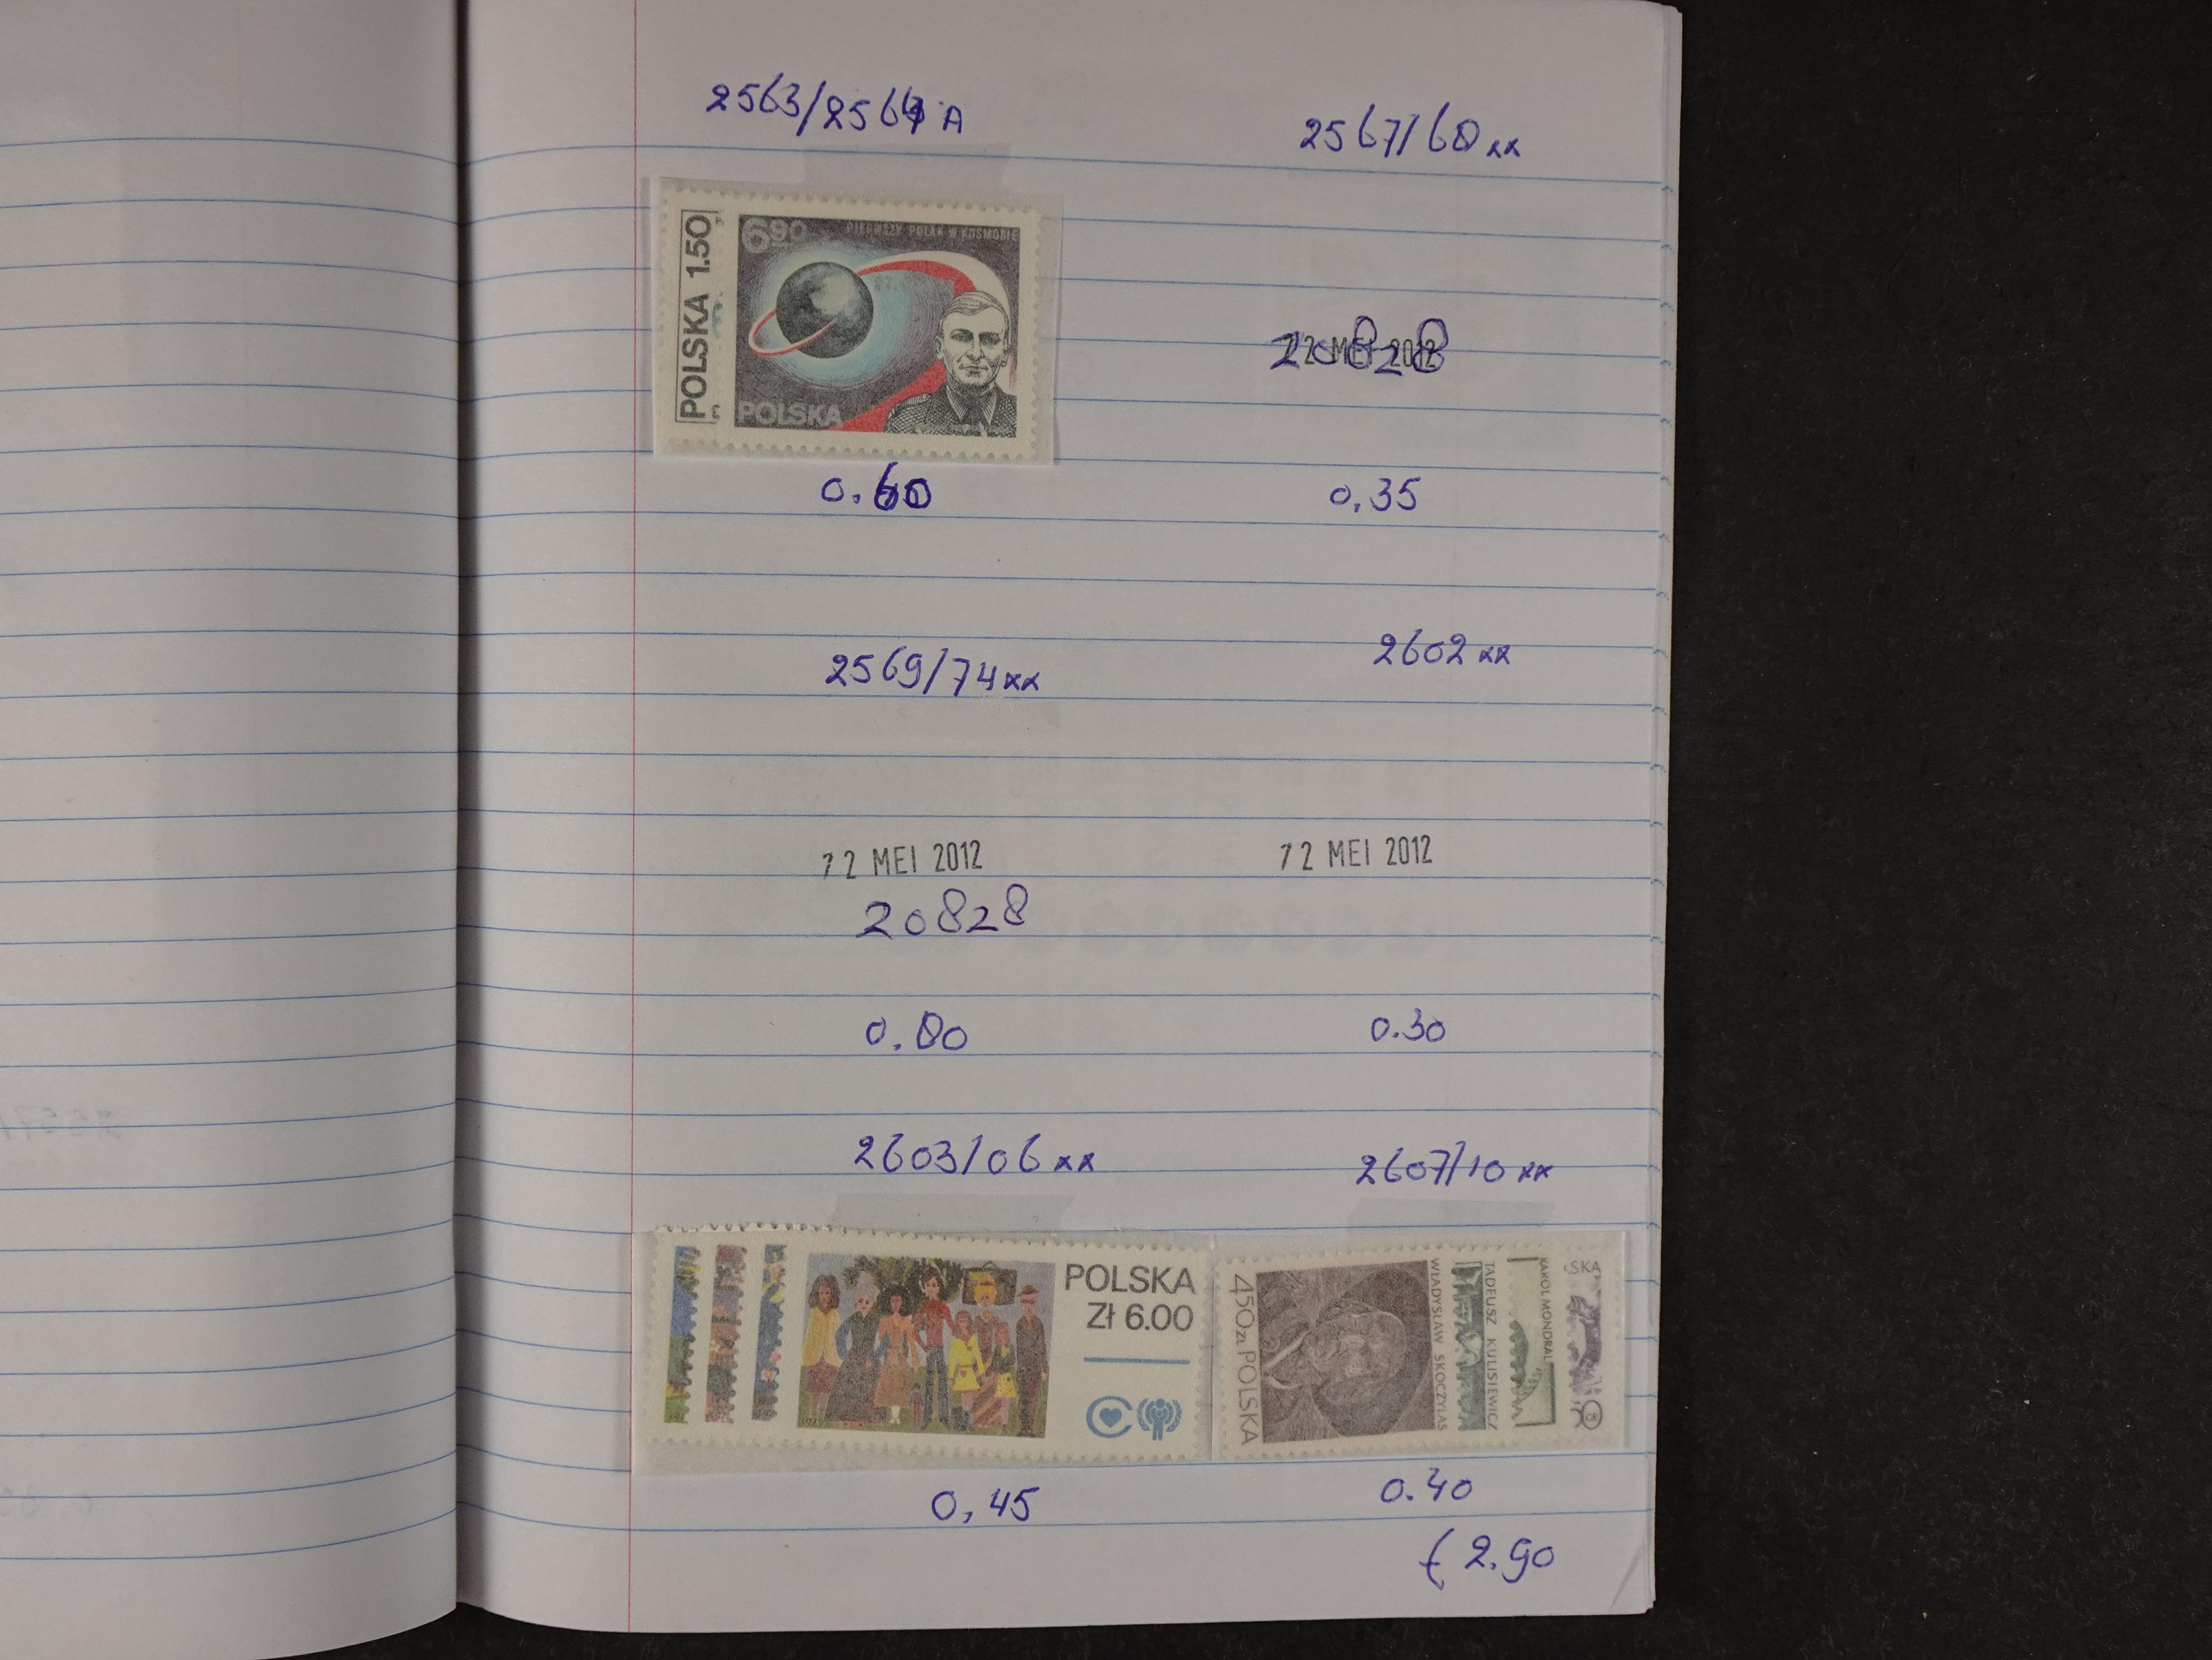 2563/2564 A
2567/68 xx
POLSKA 1.50
6.90
PIERWSZY POLAK W KOSMOSIE
POLSKA
12 MEI 2012
20828
0.60
0,35
2569/74 xx
2602 xx
12 MEI 2012
12 MEI 2012
20828
0.80
0.30
2603/06 xx
2607/10 xx
POLSKA
Zł 6.00
450 zł POLSKA
WŁADYSŁAW SKOCZYLAS
TADEUSZ KULISIEWICZ
KAROL MONDRAL
SKA
0,45
0.40
f 2.90